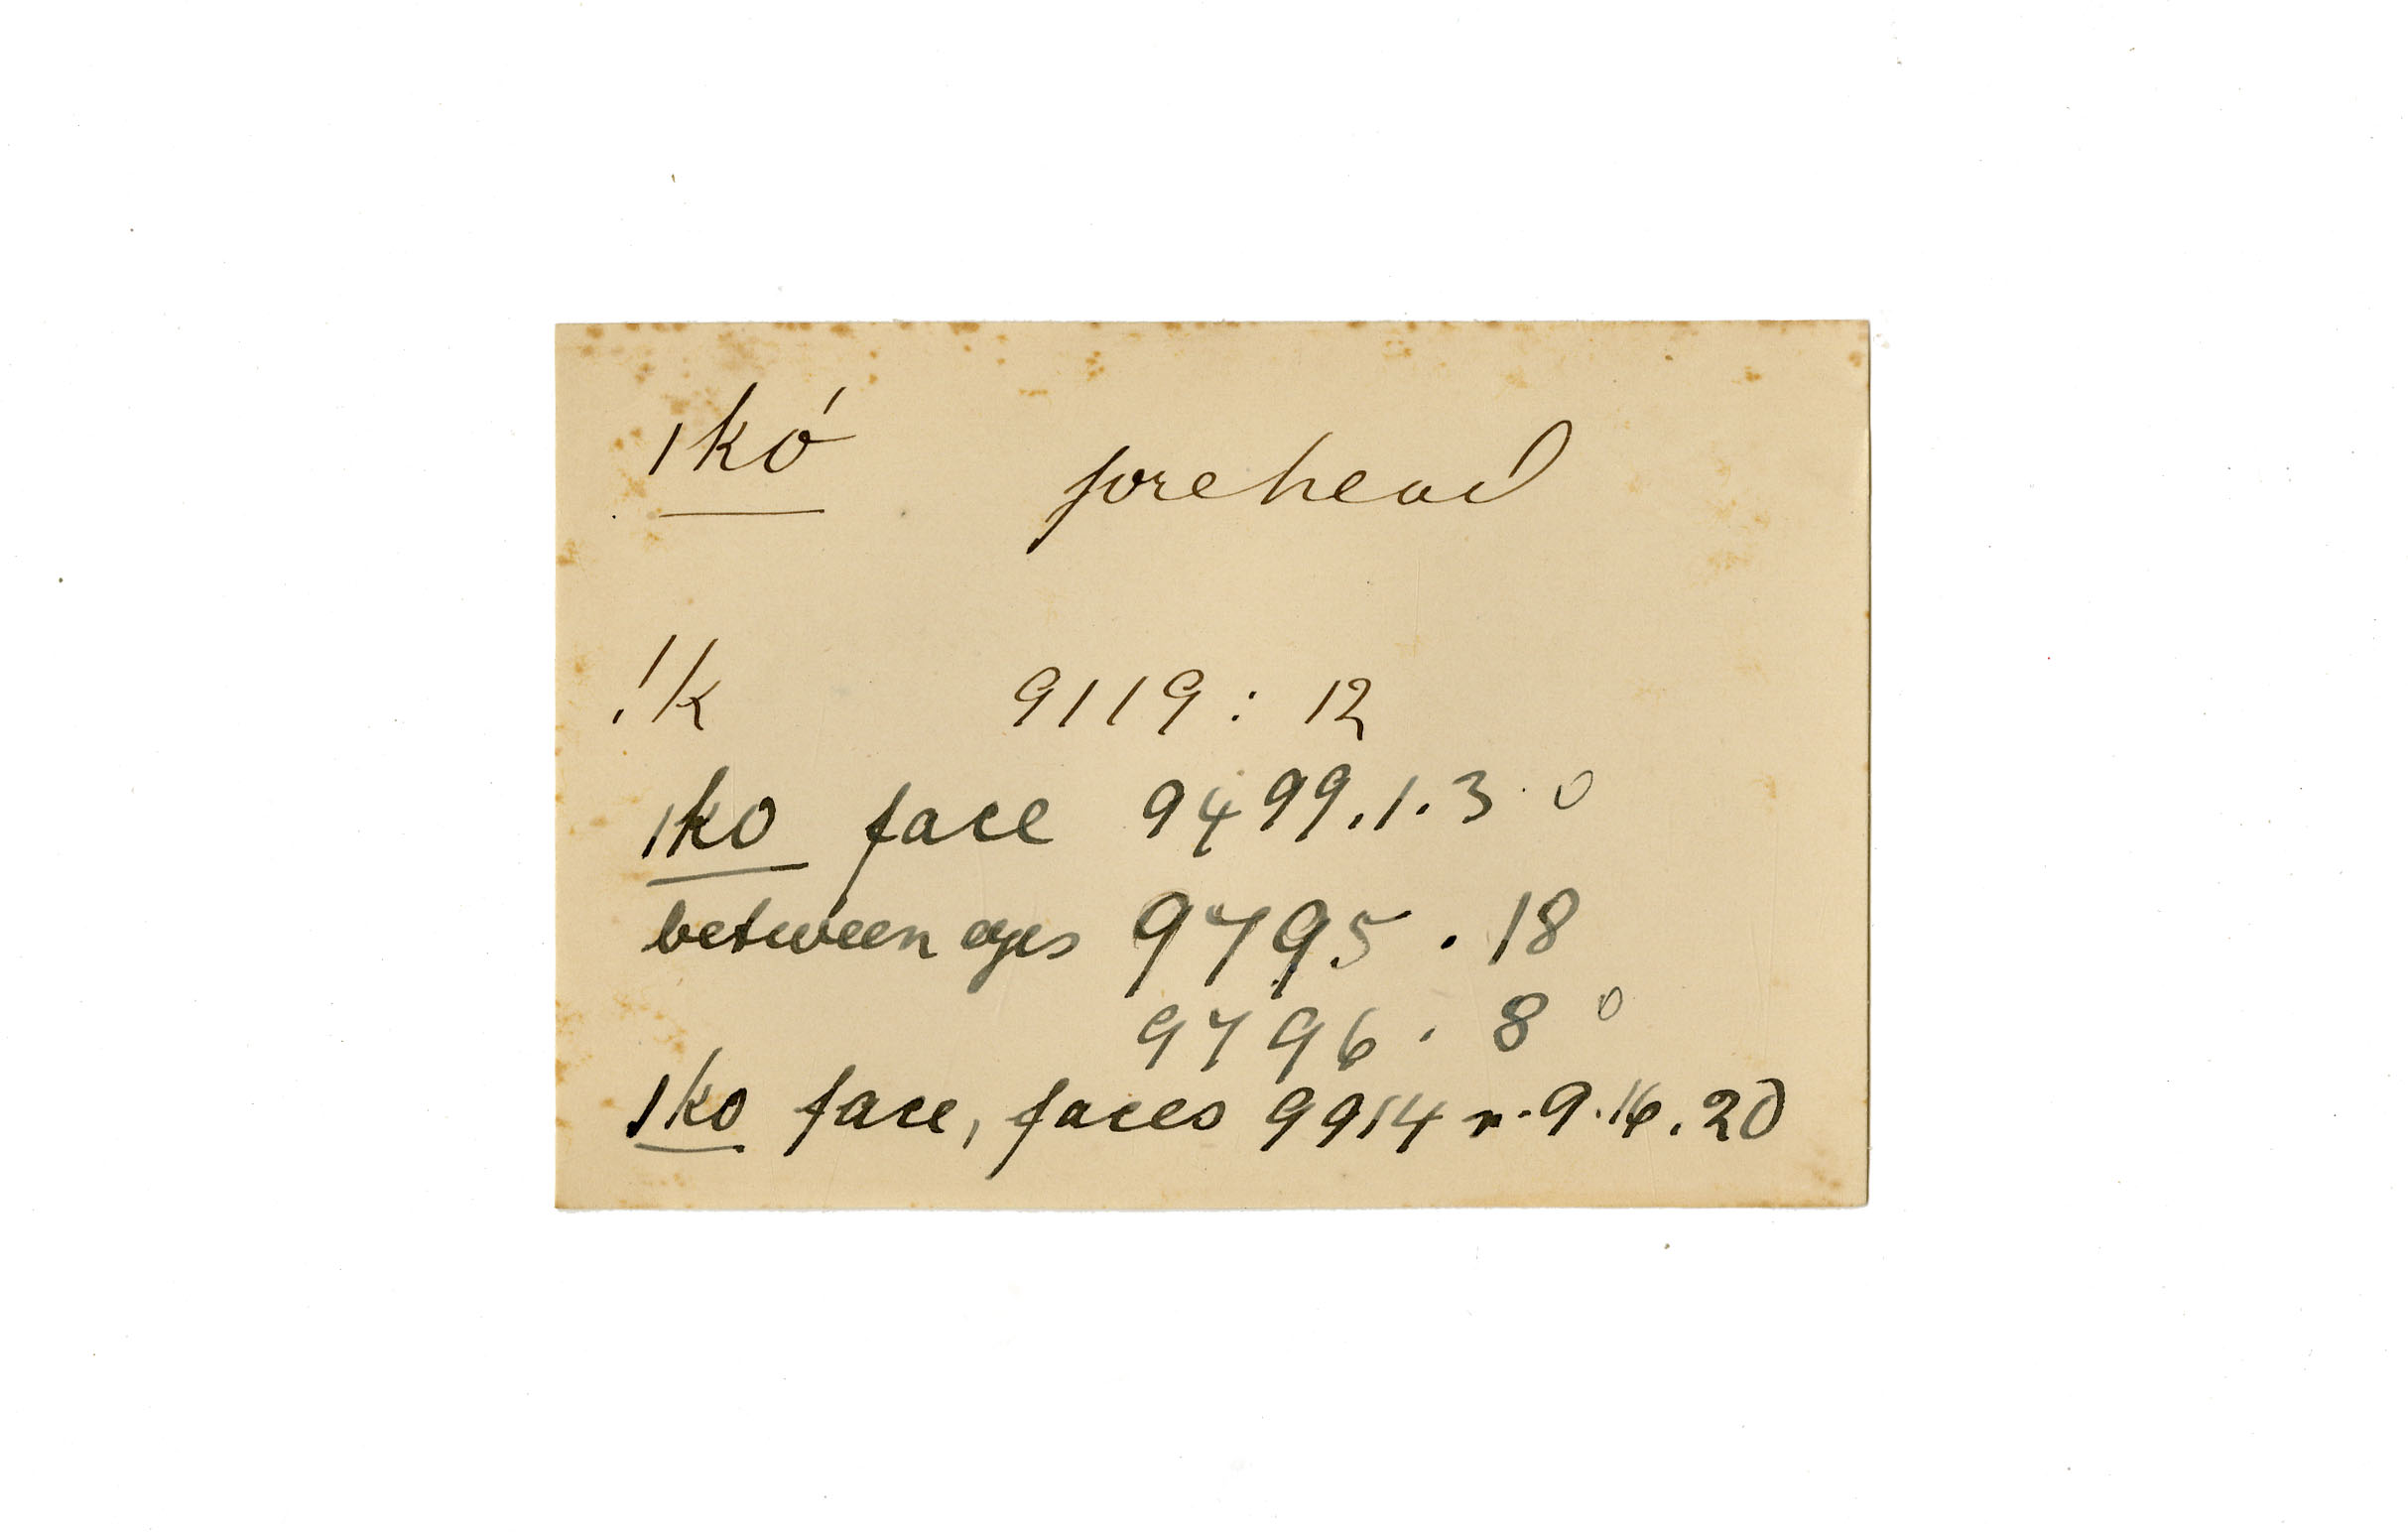 ǀkó forehead
!k 9119 : 12
ǀko face 9499.1.3 0
between eyes 9795 . 18
9796 . 8 0
ǀko face, faces 9914 r.9.16.20